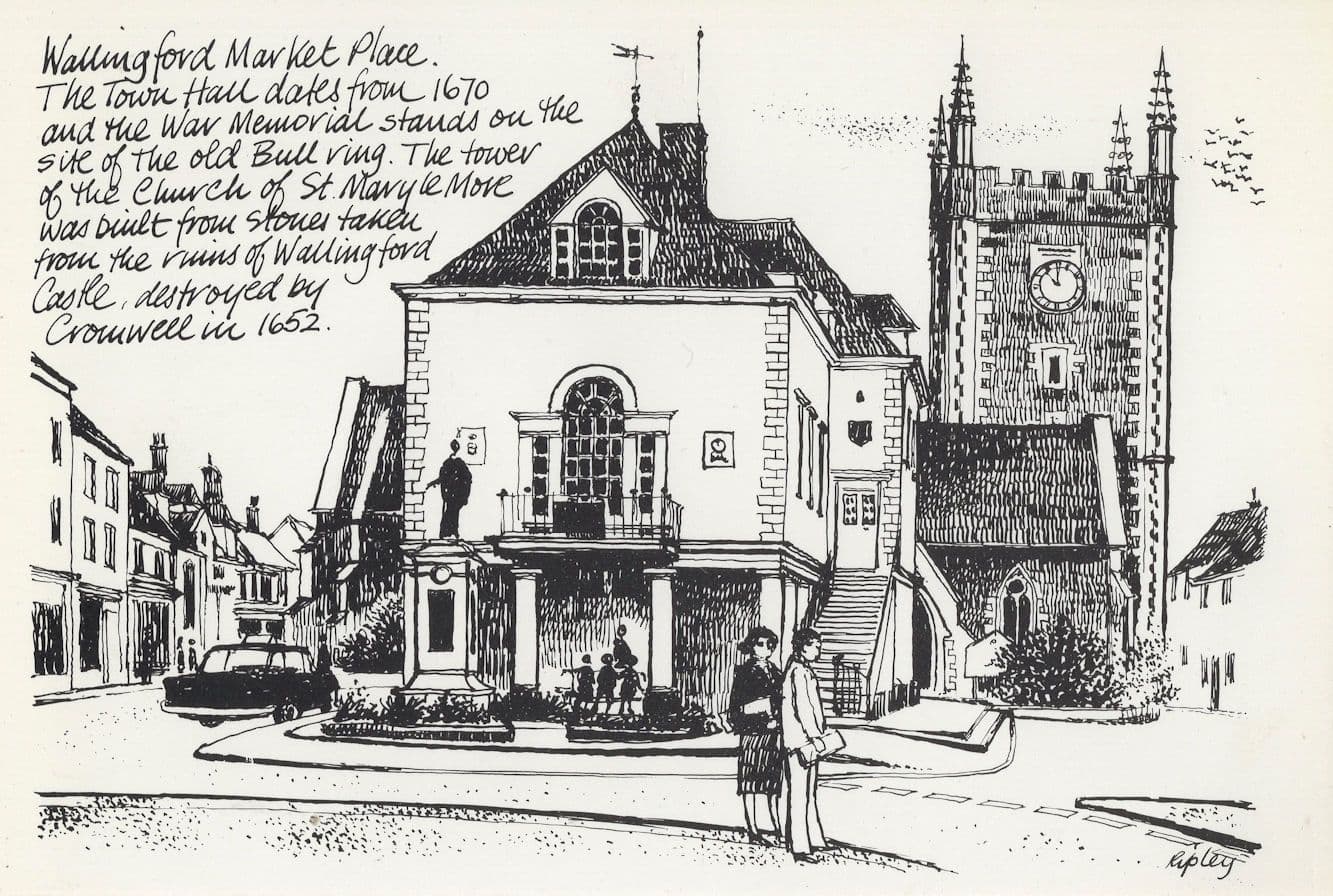 Wallingford Market Place.
The Town Hall dates from 1670
and the War Memorial stands on the
site of the old Bull ring. The tower
of the Church of St. Mary le More
was built from stones taken
from the ruins of Wallingford
Castle, destroyed by
Cromwell in 1652.
Ripley